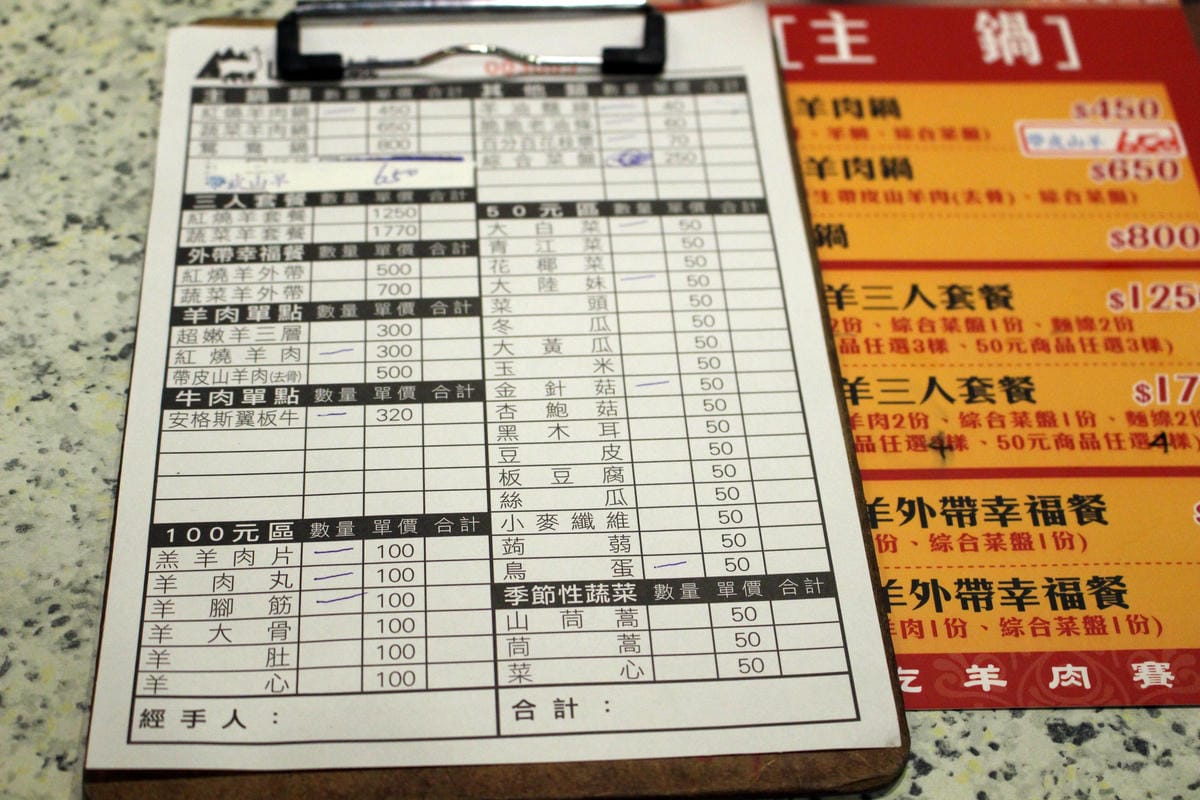 主鍋類 數量 單價 合計
紅燒羊肉鍋 一 450
蔬菜羊肉鍋 650
鴛鴦鍋 800
帶皮山羊 650
三人套餐 數量 單價 合計
紅燒羊套餐 1250
蔬菜羊套餐 1770
外帶幸福餐 數量 單價 合計
紅燒羊外帶 500
蔬菜羊外帶 700
羊肉單點 數量 單價 合計
超嫩羊三層 300
紅燒羊肉 一 300
帶皮山羊肉(去骨) 500
牛肉單點 數量 單價 合計
安格斯翼板牛 一 320
100元區 數量 單價 合計
羔羊肉片 一 100
羊肉丸 一 100
羊腳筋 一 100
羊大骨 100
羊肚 100
羊心 100
經手人：
其他類 數量 單價 合計
羊油麵線 一 40
脆脆老油條 一 60
百分百花枝漿 一 70
綜合菜盤 250
50元區 數量 單價 合計
大白菜 一 50
青江菜 50
花椰菜 50
大陸妹 一 50
菜頭 50
冬瓜 50
大黃瓜 50
玉米 50
金針菇 一 50
杏鮑菇 50
黑木耳 50
豆皮 50
板豆腐 50
絲瓜 50
小麥纖維 50
蒟蒻 50
鳥蛋 一 50
季節性蔬菜 數量 單價 合計
山茼蒿 50
茼蒿 50
菜心 50
合計：
[主鍋]
羊肉鍋 $450
、羊腩、綜合菜盤)
帶皮山羊 650
羊肉鍋 $650
生帶皮山羊肉(去骨)、綜合菜盤)
鍋 $800
羊三人套餐 $125
2份、綜合菜盤1份、麵線2份
品任選3樣、50元商品任選3樣)
羊三人套餐 $17
羊肉2份、綜合菜盤1份、麵線2
品任選4樣、50元商品任選4
羊外帶幸福餐 $
份、綜合菜盤1份)
羊外帶幸福餐
羊肉1份、綜合菜盤1份)
吃羊肉賽